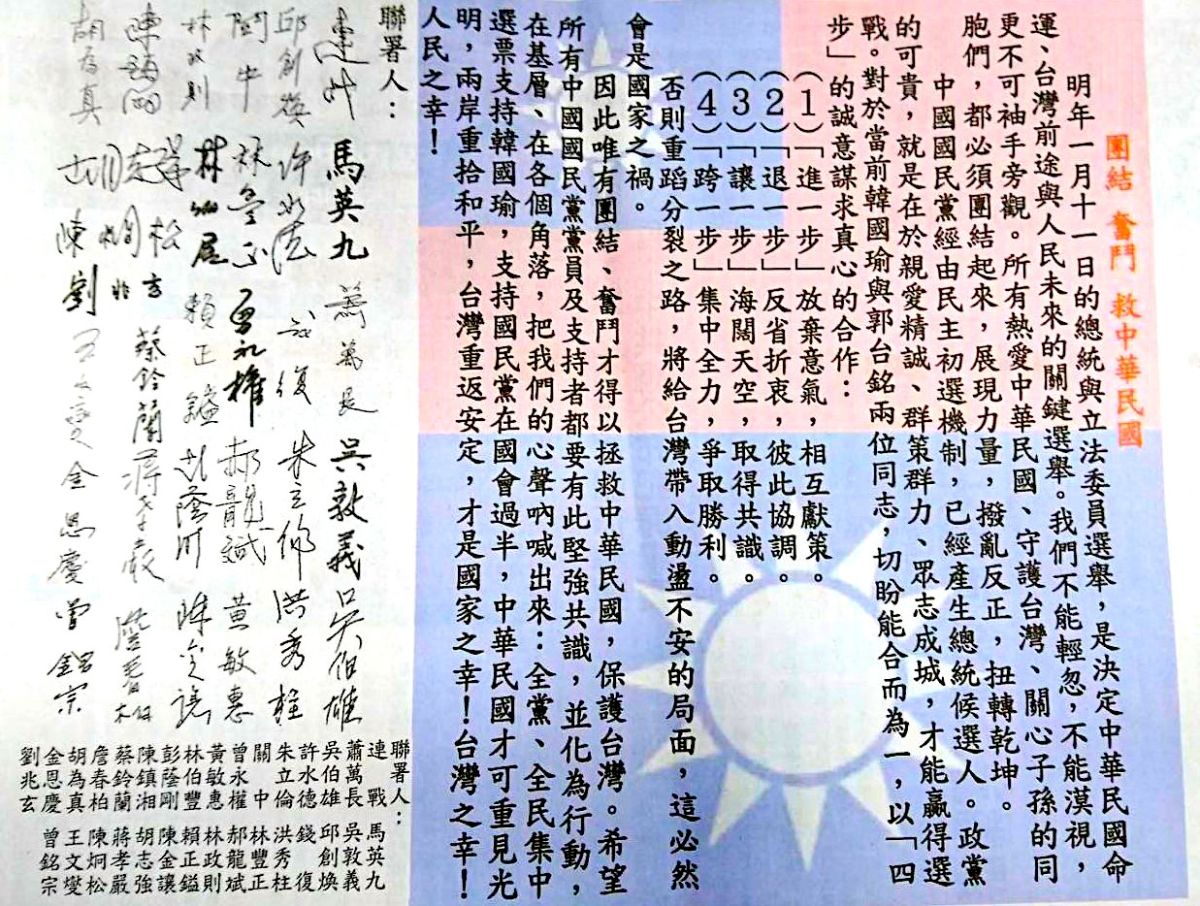 團結 奮鬥 救中華民國
明年一月十一日的總統與立法委員選舉,是決定中華民國命
運、台灣前途與人民未來的關鍵選舉。我們不能輕忽,不能漠視,
更不可袖手旁觀。所有熱愛中華民國、守護台灣、關心子孫的同
胞們,都必須團結起來,展現力量,撥亂反正,扭轉乾坤。
中國國民黨經由民主初選機制,已經產生總統候選人。政黨
的可貴,就是在於親愛精誠、群策群力、眾志成城,才能贏得選
戰。對於當前韓國瑜與郭台銘兩位同志,切盼能合而為一,以「四
步」的誠意謀求真心的合作:
(1)「進一步」放棄意氣,相互獻策。
(2)「退一步」反省折衷,彼此協調。
(3)「讓一步」海闊天空,取得共識。
(4)「跨一步」集中全力,爭取勝利。
否則重蹈分裂之路,將給台灣帶入動盪不安的局面,這必然
會是國家之禍。
因此唯有團結、奮鬥才得以拯救中華民國,保護台灣。希望
所有中國國民黨黨員及支持者都要有此堅強共識,並化為行動,
在基層、在各個角落,把我們的心聲吶喊出來:全黨、全民集中
選票支持韓國瑜,支持國民黨在國會過半,中華民國才可重見光
明,兩岸重拾和平,台灣重返安定,才是國家之幸!台灣之幸!
人民之幸!
聯署人:
連戰 馬英九 蕭萬長 吳敦義 吳伯雄
邱創煥 許水德 錢復 朱立倫 洪秀柱
關中 林豐正 曾永權 郝龍斌 黃敏惠
林政則 林伯豐 賴正鎰 彭蔭剛 陳金讓
陳鎮湘 胡志強 蔡鈴蘭 蔣孝嚴 詹春柏
胡為真 陳炯松 劉兆玄 王文燮 金恩慶 曾銘宗
聯署人:
連戰 馬英九
蕭萬長 吳敦義
吳伯雄 邱創煥
許水德 錢復
朱立倫 洪秀柱
關中 林豐正
曾永權 郝龍斌
黃敏惠 林政則
林伯豐 賴正鎰
彭蔭剛 陳金讓
陳鎮湘 胡志強
蔡鈴蘭 蔣孝嚴
詹春柏 陳炯松
胡為真 王文燮
金恩慶 曾銘宗
劉兆玄